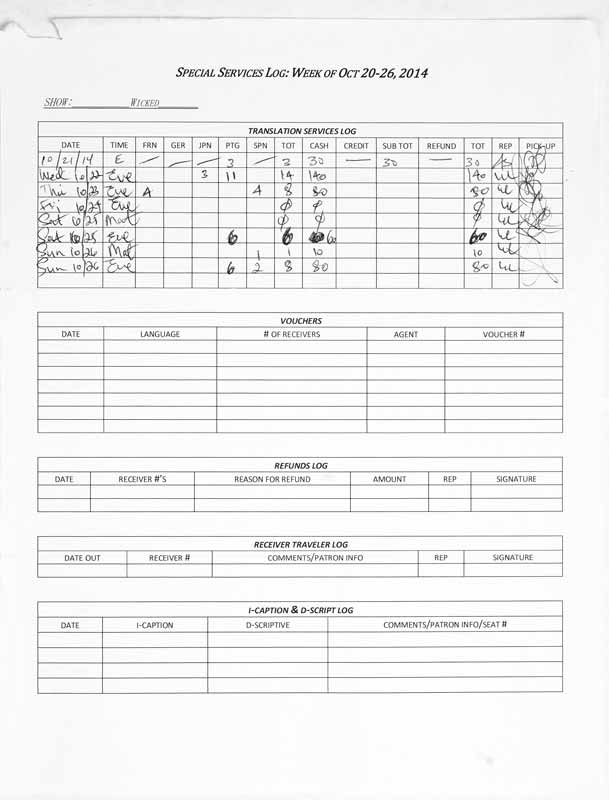 SPECIAL SERVICES LOG: WEEK OF OCT 20-26, 2014
SHOW: WICKED
TRANSLATION SERVICES LOG
DATE TIME FRN GER JPN PTG SPN TOT CASH CREDIT SUB TOT REFUND TOT REP PICK-UP
10/21/14 E — — — 3 — 3 30 — 30 — 30
Wed 10/22 Eve 3 11 14 140 140
Thu 10/23 Eve 4 4 8 80 80
Fri 10/24 Eve ϕ ϕ ϕ
Sat 10/25 Mat ϕ ϕ ϕ
Sat 10/25 Eve 6 6 60 60
Sun 10/26 Mat 1 1 10 10
Sun 10/26 Eve 6 2 8 80 80
VOUCHERS
DATE LANGUAGE # OF RECEIVERS AGENT VOUCHER #
REFUNDS LOG
DATE RECEIVER #'S REASON FOR REFUND AMOUNT REP SIGNATURE
RECEIVER TRAVELER LOG
DATE OUT RECEIVER # COMMENTS/PATRON INFO REP SIGNATURE
I-CAPTION & D-SCRIPT LOG
DATE I-CAPTION D-SCRIPTIVE COMMENTS/PATRON INFO/SEAT #